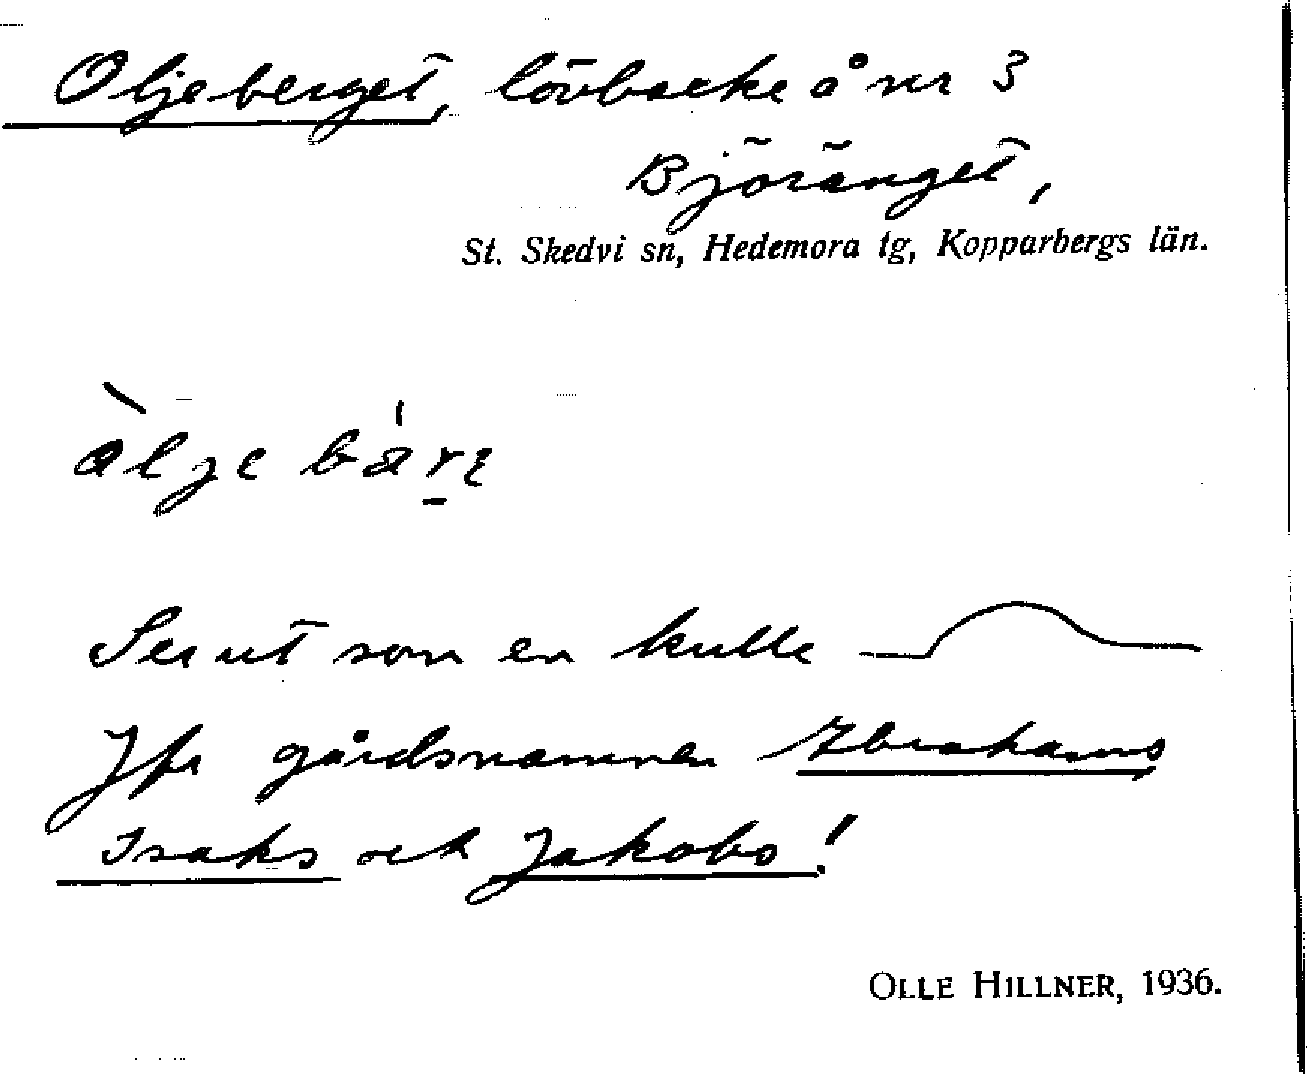 Oljeberget, lövbacke å nr 3
Björänget,
St. Skedvi sn, Hedemora tg, Kopparbergs län.
Ser ut som en kulle
Jfr gårdsnamnen Abrahams,
Isaks och Jakobs!
OLLE HILLNER, 1936.